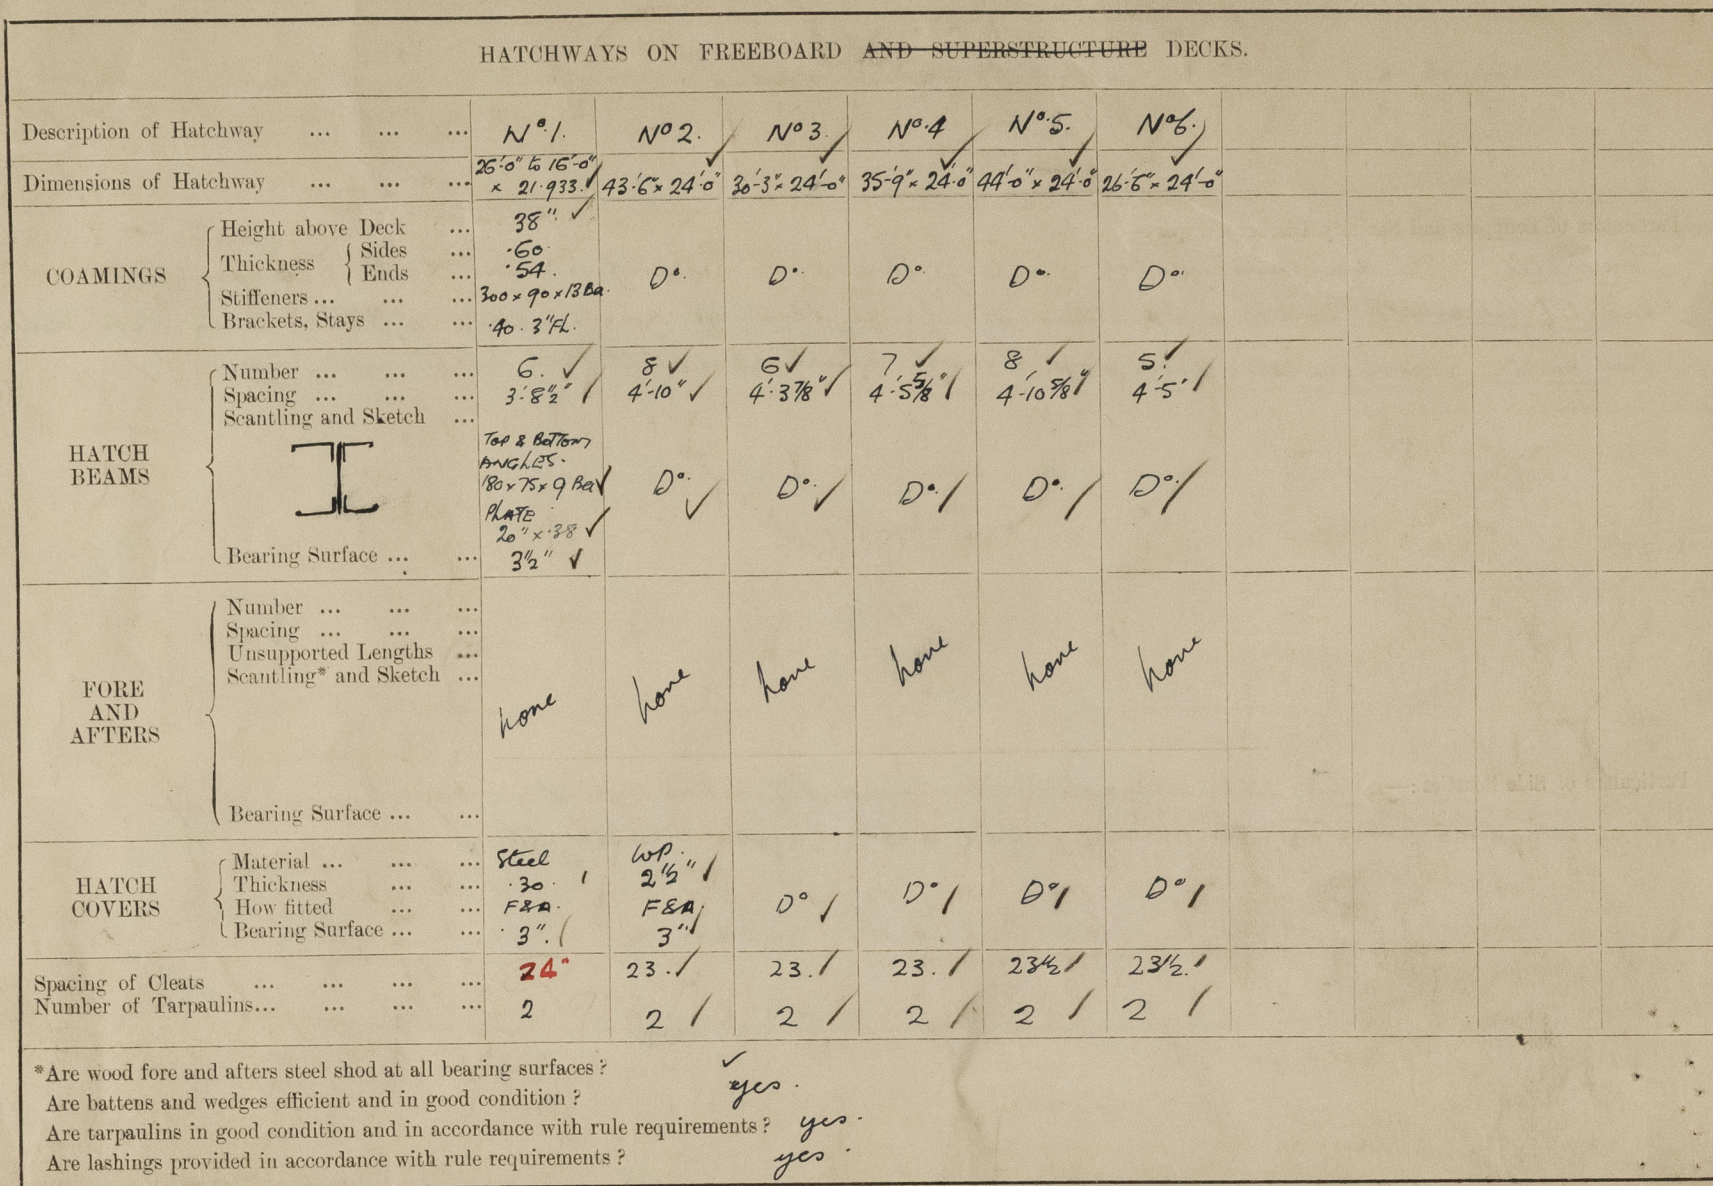 HATCHWAYS ON FREEBOARD AND SUPERSTRUCTURE DECKS.
Description of Hatchway ... ... ... Nº 1. Nº 2. Nº 3. Nº 4 Nº 5. Nº 6.
26'-0" to 16'-0"
Dimensions of Hatchway ... ... ... × 21.933. 43'-6" × 24'-0" 30'-3" × 24'-0" 35'-9" × 24'-0" 44'-0" × 24'-0" 26'-6" × 24'-0"
COAMINGS
Height above Deck ... 38"
Thickness Sides ... .60
Ends ... .54.
Dº. Dº. Dº. Dº. Dº.
Stiffeners ... ... ... 300 × 90 × 13 Ba.
Brackets, Stays ... ... .40. 3" FL.
HATCH BEAMS
Number ... ... ... 6. 8 6 7 8 5
Spacing ... ... ... 3'-8½" 4'-10" 4'-3⅞" 4'-5⅝" 4'-10⅝" 4'-5"
Scantling and Sketch ...
TOP & BOTTOM
ANGLES.
180 × 75 × 9 Ba Dº. Dº. Dº. Dº. Dº.
PLATE
20" × .38
Bearing Surface ... ... 3½"
FORE AND AFTERS
Number ... ... ...
Spacing ... ... ...
Unsupported Lengths ...
Scantling* and Sketch ...
none none none none none none
Bearing Surface ... ...
HATCH COVERS
Material ... ... ... Steel WP.
Thickness ... ... .30. 2½"
How fitted ... ... F&A. F&A Dº Dº Dº Dº
Bearing Surface ... ... 3". 3"
Spacing of Cleats ... ... ... ... 24" 23. 23. 23. 23½ 23½.
Number of Tarpaulins... ... ... ... 2 2 2 2 2 2
*Are wood fore and afters steel shod at all bearing surfaces ? ✓
Are battens and wedges efficient and in good condition ? yes.
Are tarpaulins in good condition and in accordance with rule requirements ? yes.
Are lashings provided in accordance with rule requirements ? yes.